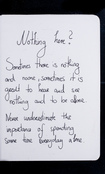 Nothing here?
Sometimes there is nothing
and none, sometimes it is
good to hear and see
nothing and to be alone.
Never underestimate the
importance of spending
some time everyday alone